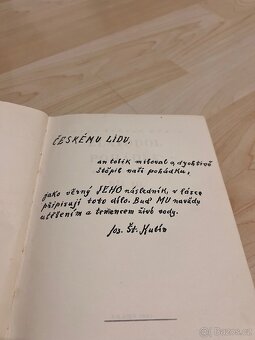 ČESKÉMU LIDU,
an tolik miloval a dychtivě
štěpil naši pohádku,
jako věrný JEHO následník, v lásce
připisuji toto dílo. Buď MU navždy
utěšením a temencem živé vody.
Jos. Št. Kubín
Bazoš.cz